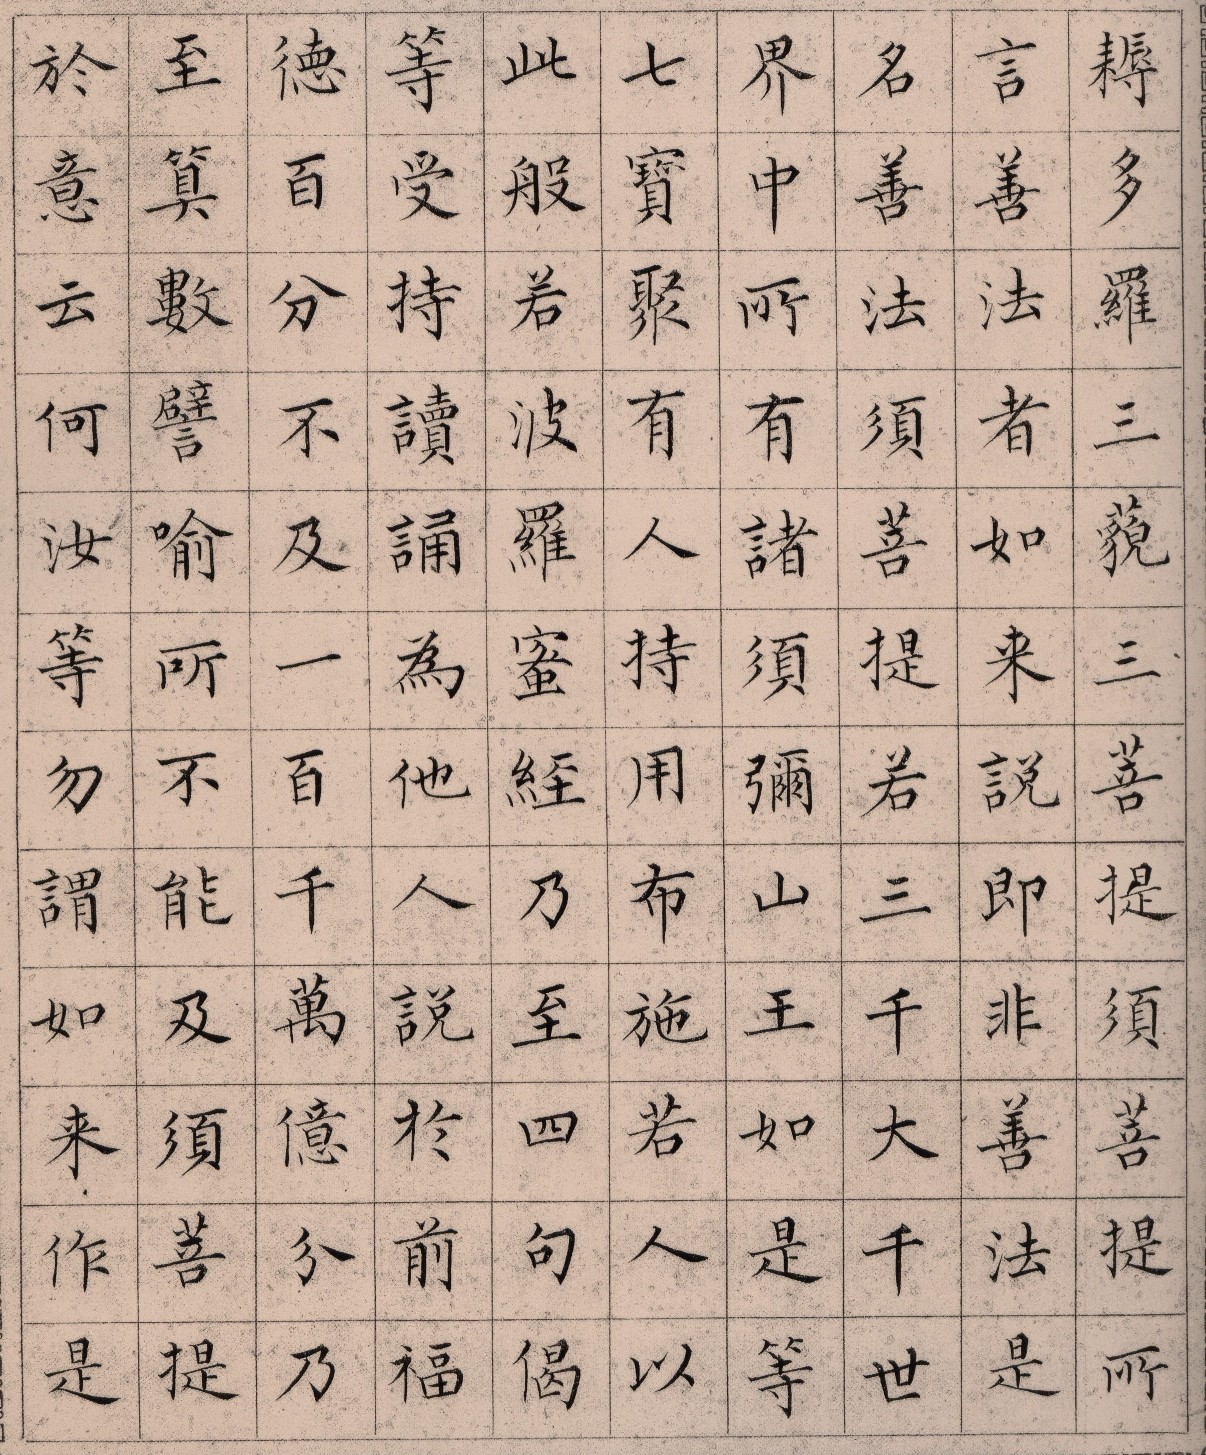 耨多羅三藐三菩提須菩提所
言善法者如来説即非善法是
名善法須菩提若三千大千世
界中所有諸須彌山王如是等
七寶聚有人持用布施若人以
此般若波羅蜜經乃至四句偈
等受持讀誦為他人説於前福
德百分不及一百千萬億分乃
至算數譬喻所不能及須菩提
於意云何汝等勿謂如来作是